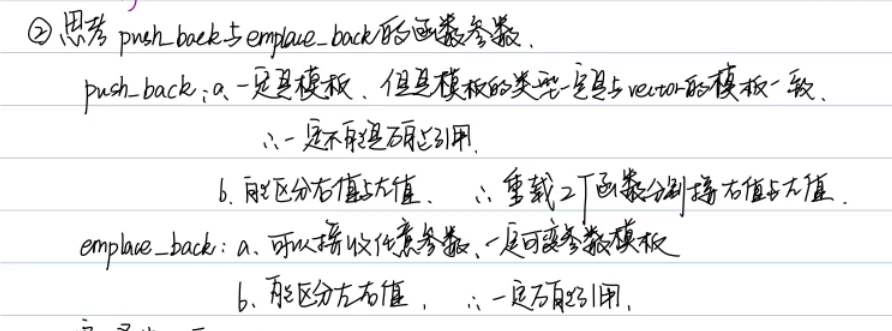 ② 思考 push_back与emplace_back的函数参数.
push_back: a、一定是模板、但是模板的类型一定是与vector的模板一致、
∴一定不能是万能引用.
b. 能区分右值与左值、 ∴重载2个函数分别接右值与左值.
emplace_back: a、可以接收任意参数、一定可变参数模板
b、能区分左右值, ∴一定万能引用.